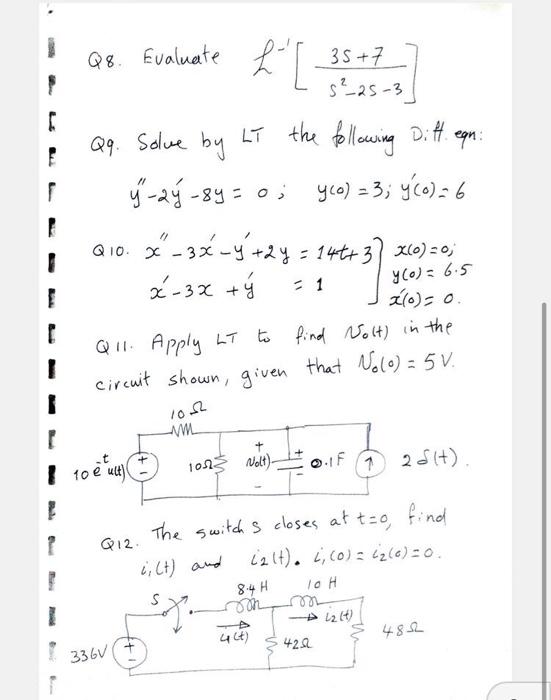 Q8. Evaluate ℒ⁻¹[ (3S+7) / (S²-2S-3) ]
Q9. Solve by LT the following Diff. eqn:
y″-2y′-8y = 0; y(0) = 3; y′(0) = 6
Q10. x″-3x′-y′+2y = 14t+3 } x(0)=0;
y(0) = 6.5
x′-3x+y′ = 1
x′(0) = 0.
Q11. Apply LT to find V₀(t) in the
circuit shown, given that V₀(0) = 5 V.
10 Ω
10 e⁻ᵗ u(t) + - 10Ω + V₀(t) - + - 0.1F ↑ 2 δ(t).
Q12. The switch S closes at t=0, find
i₁(t) and i₂(t). i₁(0) = i₂(0) = 0.
S 8.4 H 10 H
i₁(t) i₂(t)
336V + - 42Ω 48Ω